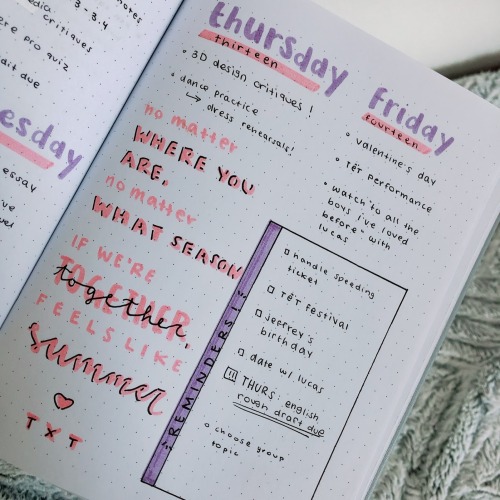 3-3.4
critiques
pro quiz
due
esday
essay
thursday
thirteen
• 3D design critiques!
• dance practice
↳ dress rehearsals!
no matter
WHERE YOU
ARE,
no matter
WHAT SEASON
IF WE'RE
TOGETHER
together,
FEELS LIKE
summer
♡
TXT
Friday
fourteen
• valentine's day
• TET performance
• watch "to all the
boys i've loved
before" with
lucas
REMINDERS
□ handle speeding
ticket
□ TET festival
□ jeffrey's
birthday
□ date w/ lucas
THURS: english
rough draft due
○ choose group
topic